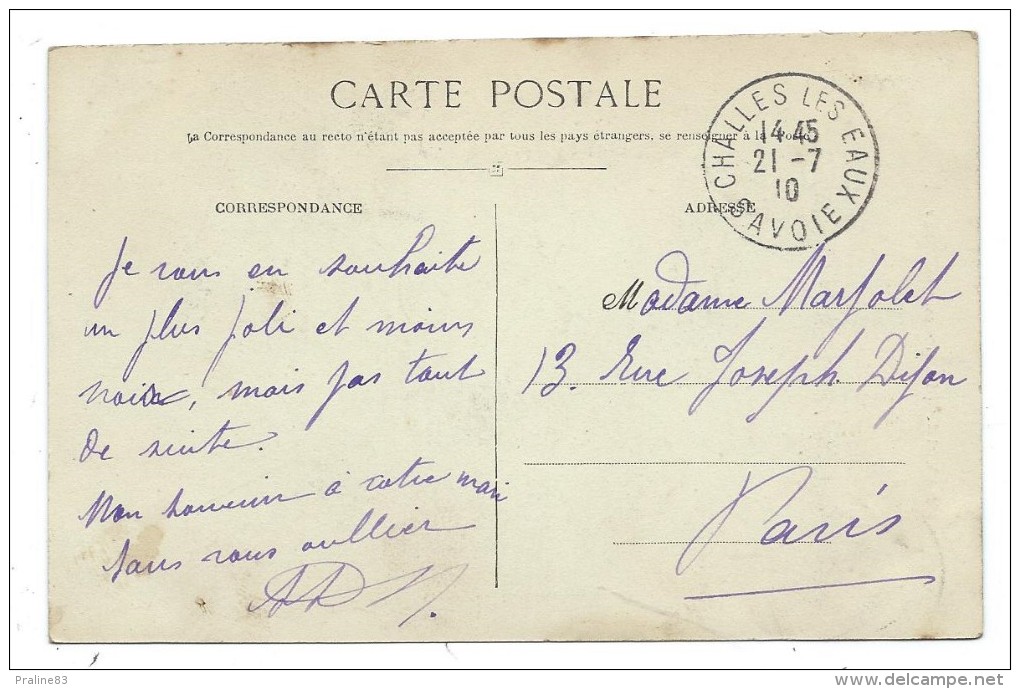 CARTE POSTALE
La Correspondance au recto n'étant pas acceptée par tous les pays étrangers, se renseigner à la Poste
CHALLES LES EAUX
14 45
21 -7
10
SAVOIE
CORRESPONDANCE
Je vous en souhaite
un plus joli et moins
noir, mais pas tout
de suite.
Mon souvenir à votre mari
sans vous oullier
ADRESSE
Madame Marjolet
13. Rue Joseph Dijon
Paris
Praline83
www.delcampe.net